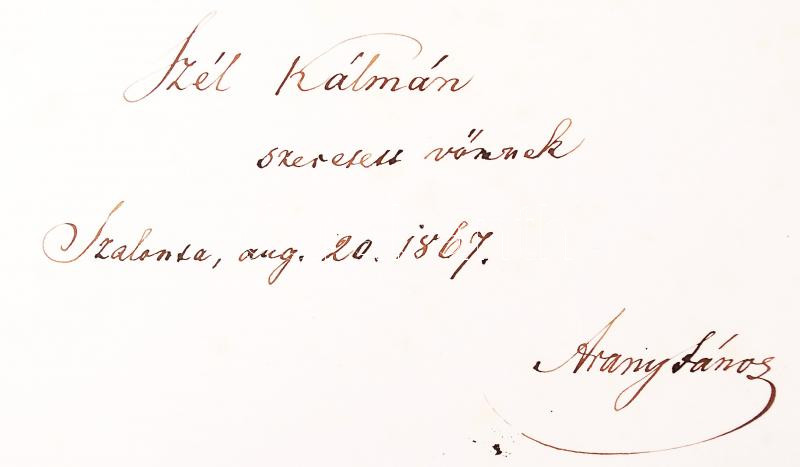 Szél Kálmán
szeretett vőmnek
Szalonta, aug. 20. 1867.
Arany János